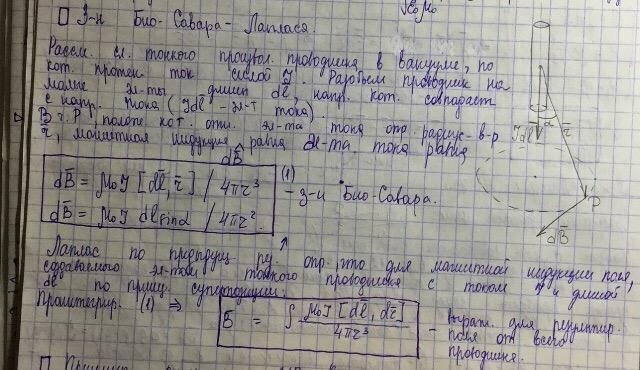 √ε₀μ₀
□ З-н Био-Савара-Лапласа.
Рассм. сл. тонкого произвол. проводника в вакууме, по
кот. протек. ток силой I. Разобьем проводник на
малые эл-ты длины dl, напр. кот. совпадает
с напр. тока (Idl – эл-т тока).
В т. P, полож. кот. отн. эл-та тока опр. радиус-в-р
r̄, магнитная индукция равна эл-та тока равна
dB̄
dB̄ = μ₀I [dl̄, r̄] / 4πr³ (1)
dB̄ = μ₀I dl sinα / 4πr².
– з-н Био-Савара.
Idl̄ α r̄
P
dB̄
Лаплас по предыдущ. опр., что для магнитной индукции поля,
создаваемого эл-том тонкого проводника с током I и длиной
dl по принц. суперпозиции:
Проинтегрир. (1) ⇒
B̄ = ∫ μ₀I [dl̄, dr̄] / 4πr³
– выраж. для результир.
поля от всего
проводника.